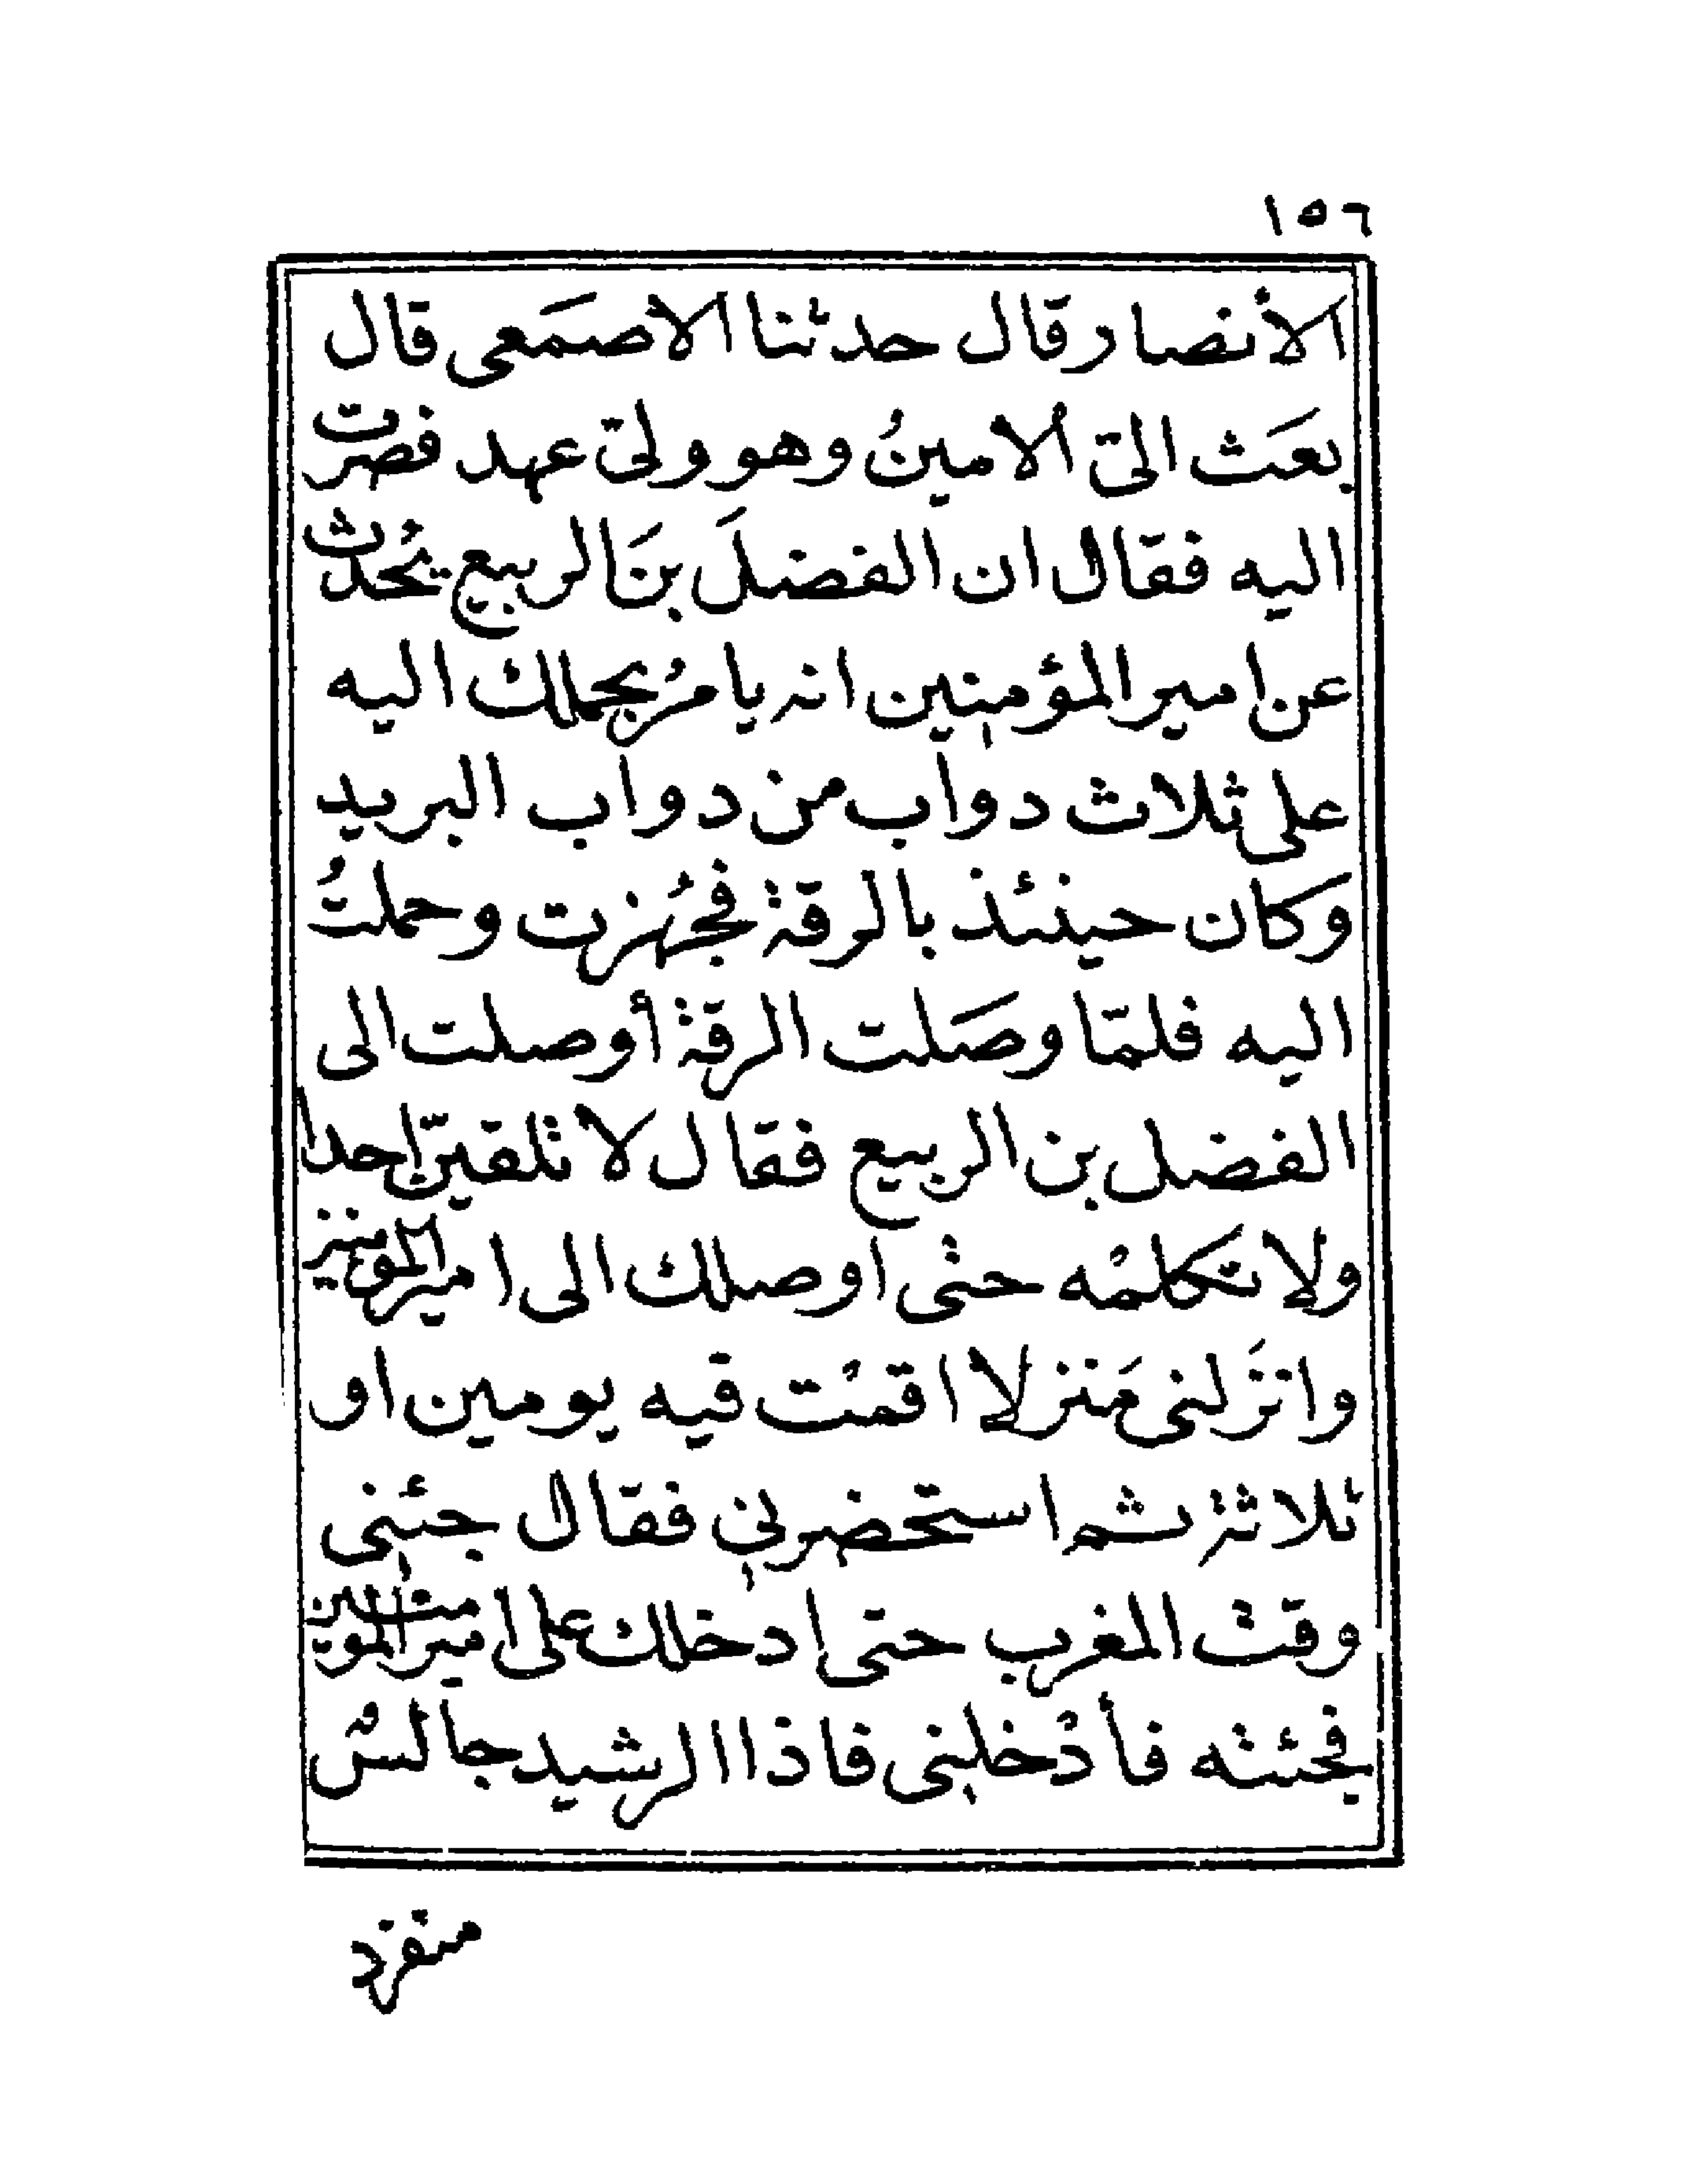 ١٥٦
الأنصار قال حدثنا الاصمَعى قال
بعَث الىّ الامينُ وهو ولىّ عهد فصرت
اليه فقال ان الفضلَ بنَ الربيع يُحدث
عن امير المؤمنين انه يامرُ بحملك اليه
على ثلاث دواب من دواب البريد
وكان حينئذ بالرقة فجُهزت وحملتُ
اليه فلمّا وصَلت الرقة أوصلت الى
الفضل بن الربيع فقال لا تلقينّ احدا
ولا تكلمْه حتى اوصلك الى امير المومنين
وانزَلنى مَنزلا اقمْت فيه يومين او
ثلاثة ثم استحضرنى فقال جئنى
وقت المغرب حتى ادخلك على امير المومنين
فجئته فأدْخلنى فاذا الرشيد جالسٌ
منفرد